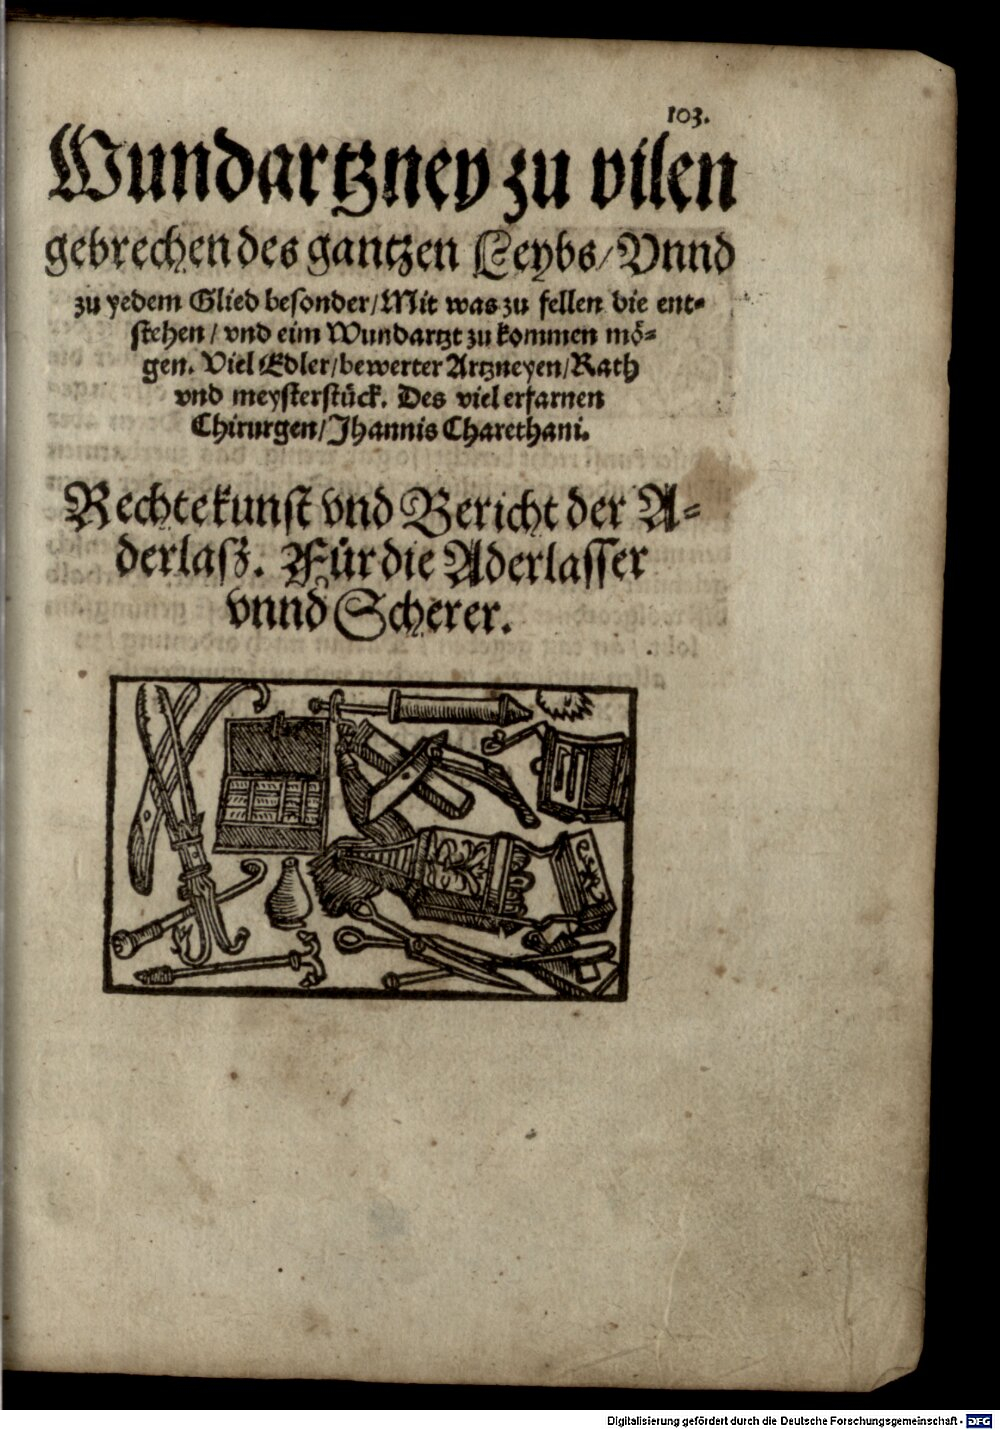 103.
Wundartzney zu vilen
gebrechen des gantzen Leybs/Vnnd
zu yedem Glied besonder/Mit was zu fellen die ent-
stehen/vnd eim Wundartzt zu kommen mö-
gen. Viel Edler/bewerter Artzneyen/Rath
vnd meysterstück. Des viel erfarnen
Chirurgen/Jhannis Charethani.
Rechte kunst vnd Bericht der A-
derlasz. Für die Aderlasser
vnnd Scherer.
Digitalisierung gefördert durch die Deutsche Forschungsgemeinschaft - DFG